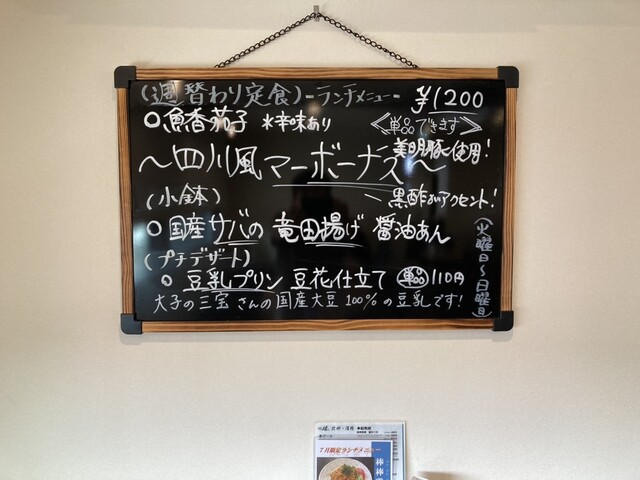 (週替わり定食)-ランチメニュー- ¥1200
○魚香茄子 *辛味あり 《単品できます》
美明豚使用!
～四川風マーボーナス～
黒酢がアクセント!
(小鉢)
○国産サバの竜田揚げ 醤油あん
(プチデザート)
○豆乳プリン 豆花仕立て 単品110円
大子の三宝さんの国産大豆100%の豆乳です!
(火曜日～日曜日)
7月限定ランチメニュー
棒棒